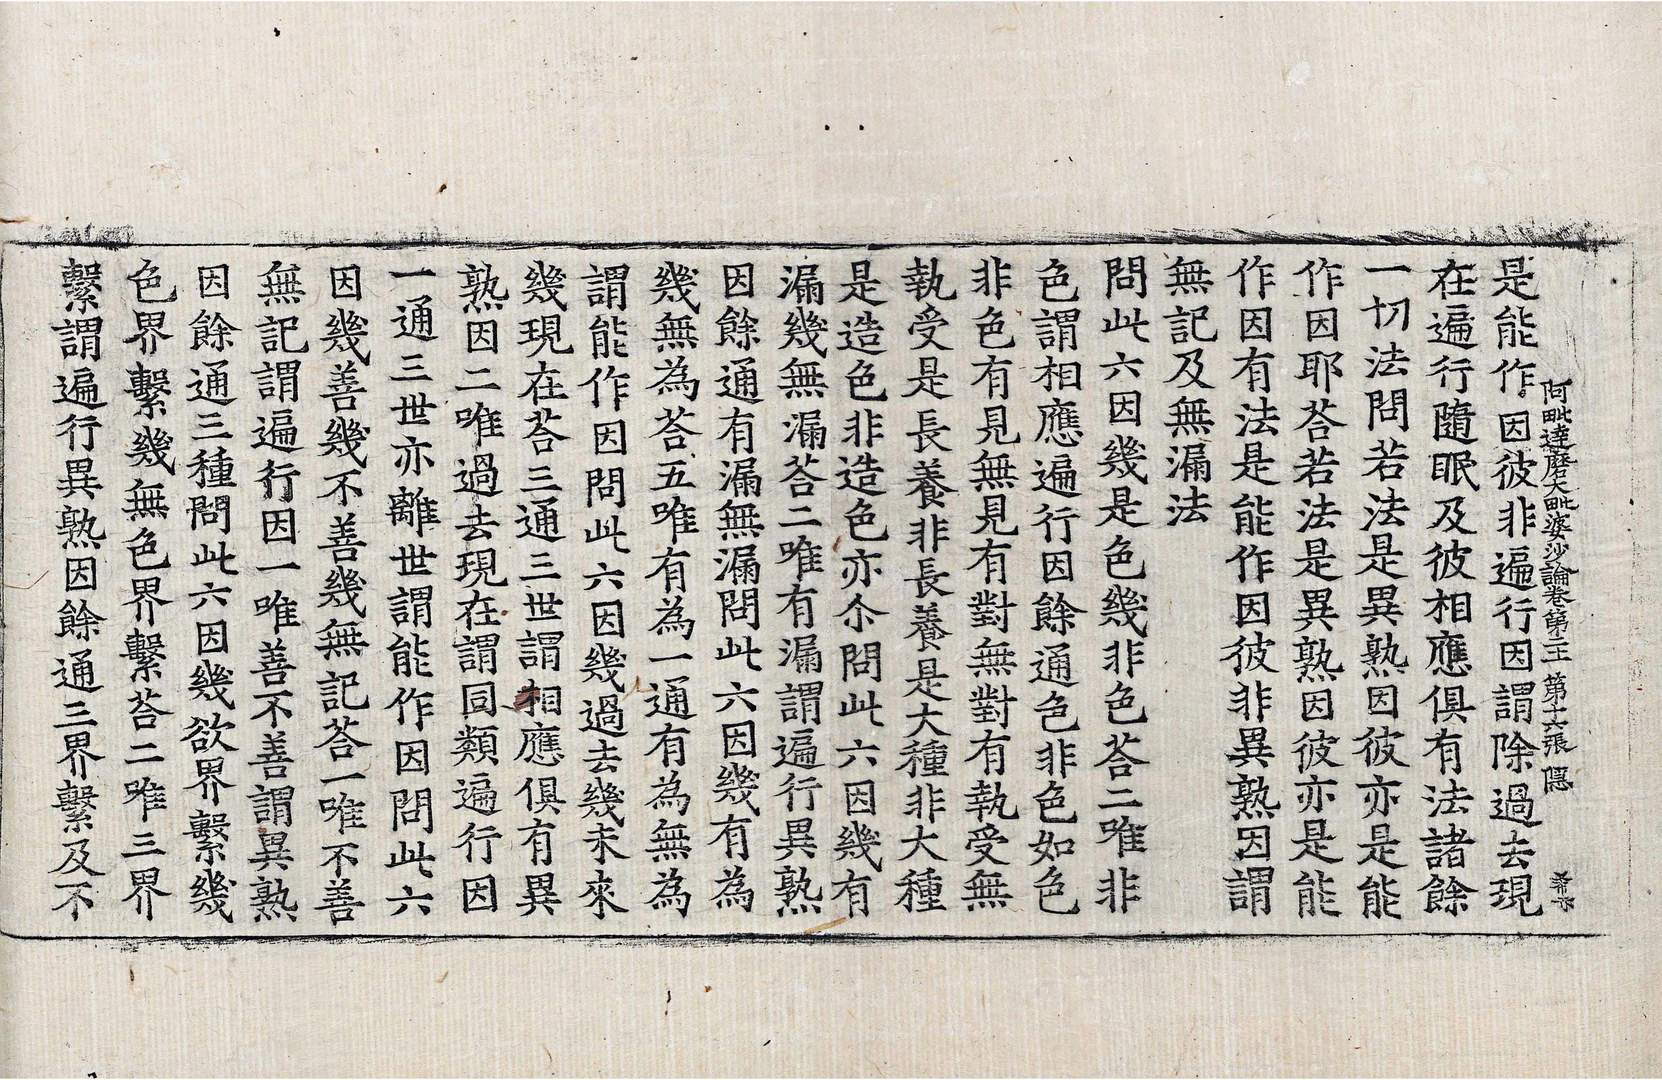 阿毗達磨大毗婆沙論卷第二王 第十六張 隱
是能作因彼非遍行因謂除過去現
在遍行隨眠及彼相應俱有法諸餘
一切法問若法是異熟因彼亦是能
作因耶荅若法是異熟因彼亦是能
作因有法是能作因彼非異熟因謂
無記及無漏法
問此六因幾是色幾非色荅二唯非
色謂相應遍行因餘通色非色如色
非色有見無見有對無對有執受無
執受是長養非長養是大種非大種
是造色非造色亦尒問此六因幾有
漏幾無漏荅二唯有漏謂遍行異熟
因餘通有漏無漏問此六因幾有為
幾無為荅五唯有為一通有為無為
謂能作因問此六因幾過去幾未來
幾現在荅三通三世謂相應俱有異
熟因二唯過去現在謂同類遍行因
一通三世亦離世謂能作因問此六
因幾善幾不善幾無記荅一唯不善
無記謂遍行因一唯善不善謂異熟
因餘通三種問此六因幾欲界繫幾
色界繫幾無色界繫荅二唯三界
繫謂遍行異熟因餘通三界繫及不